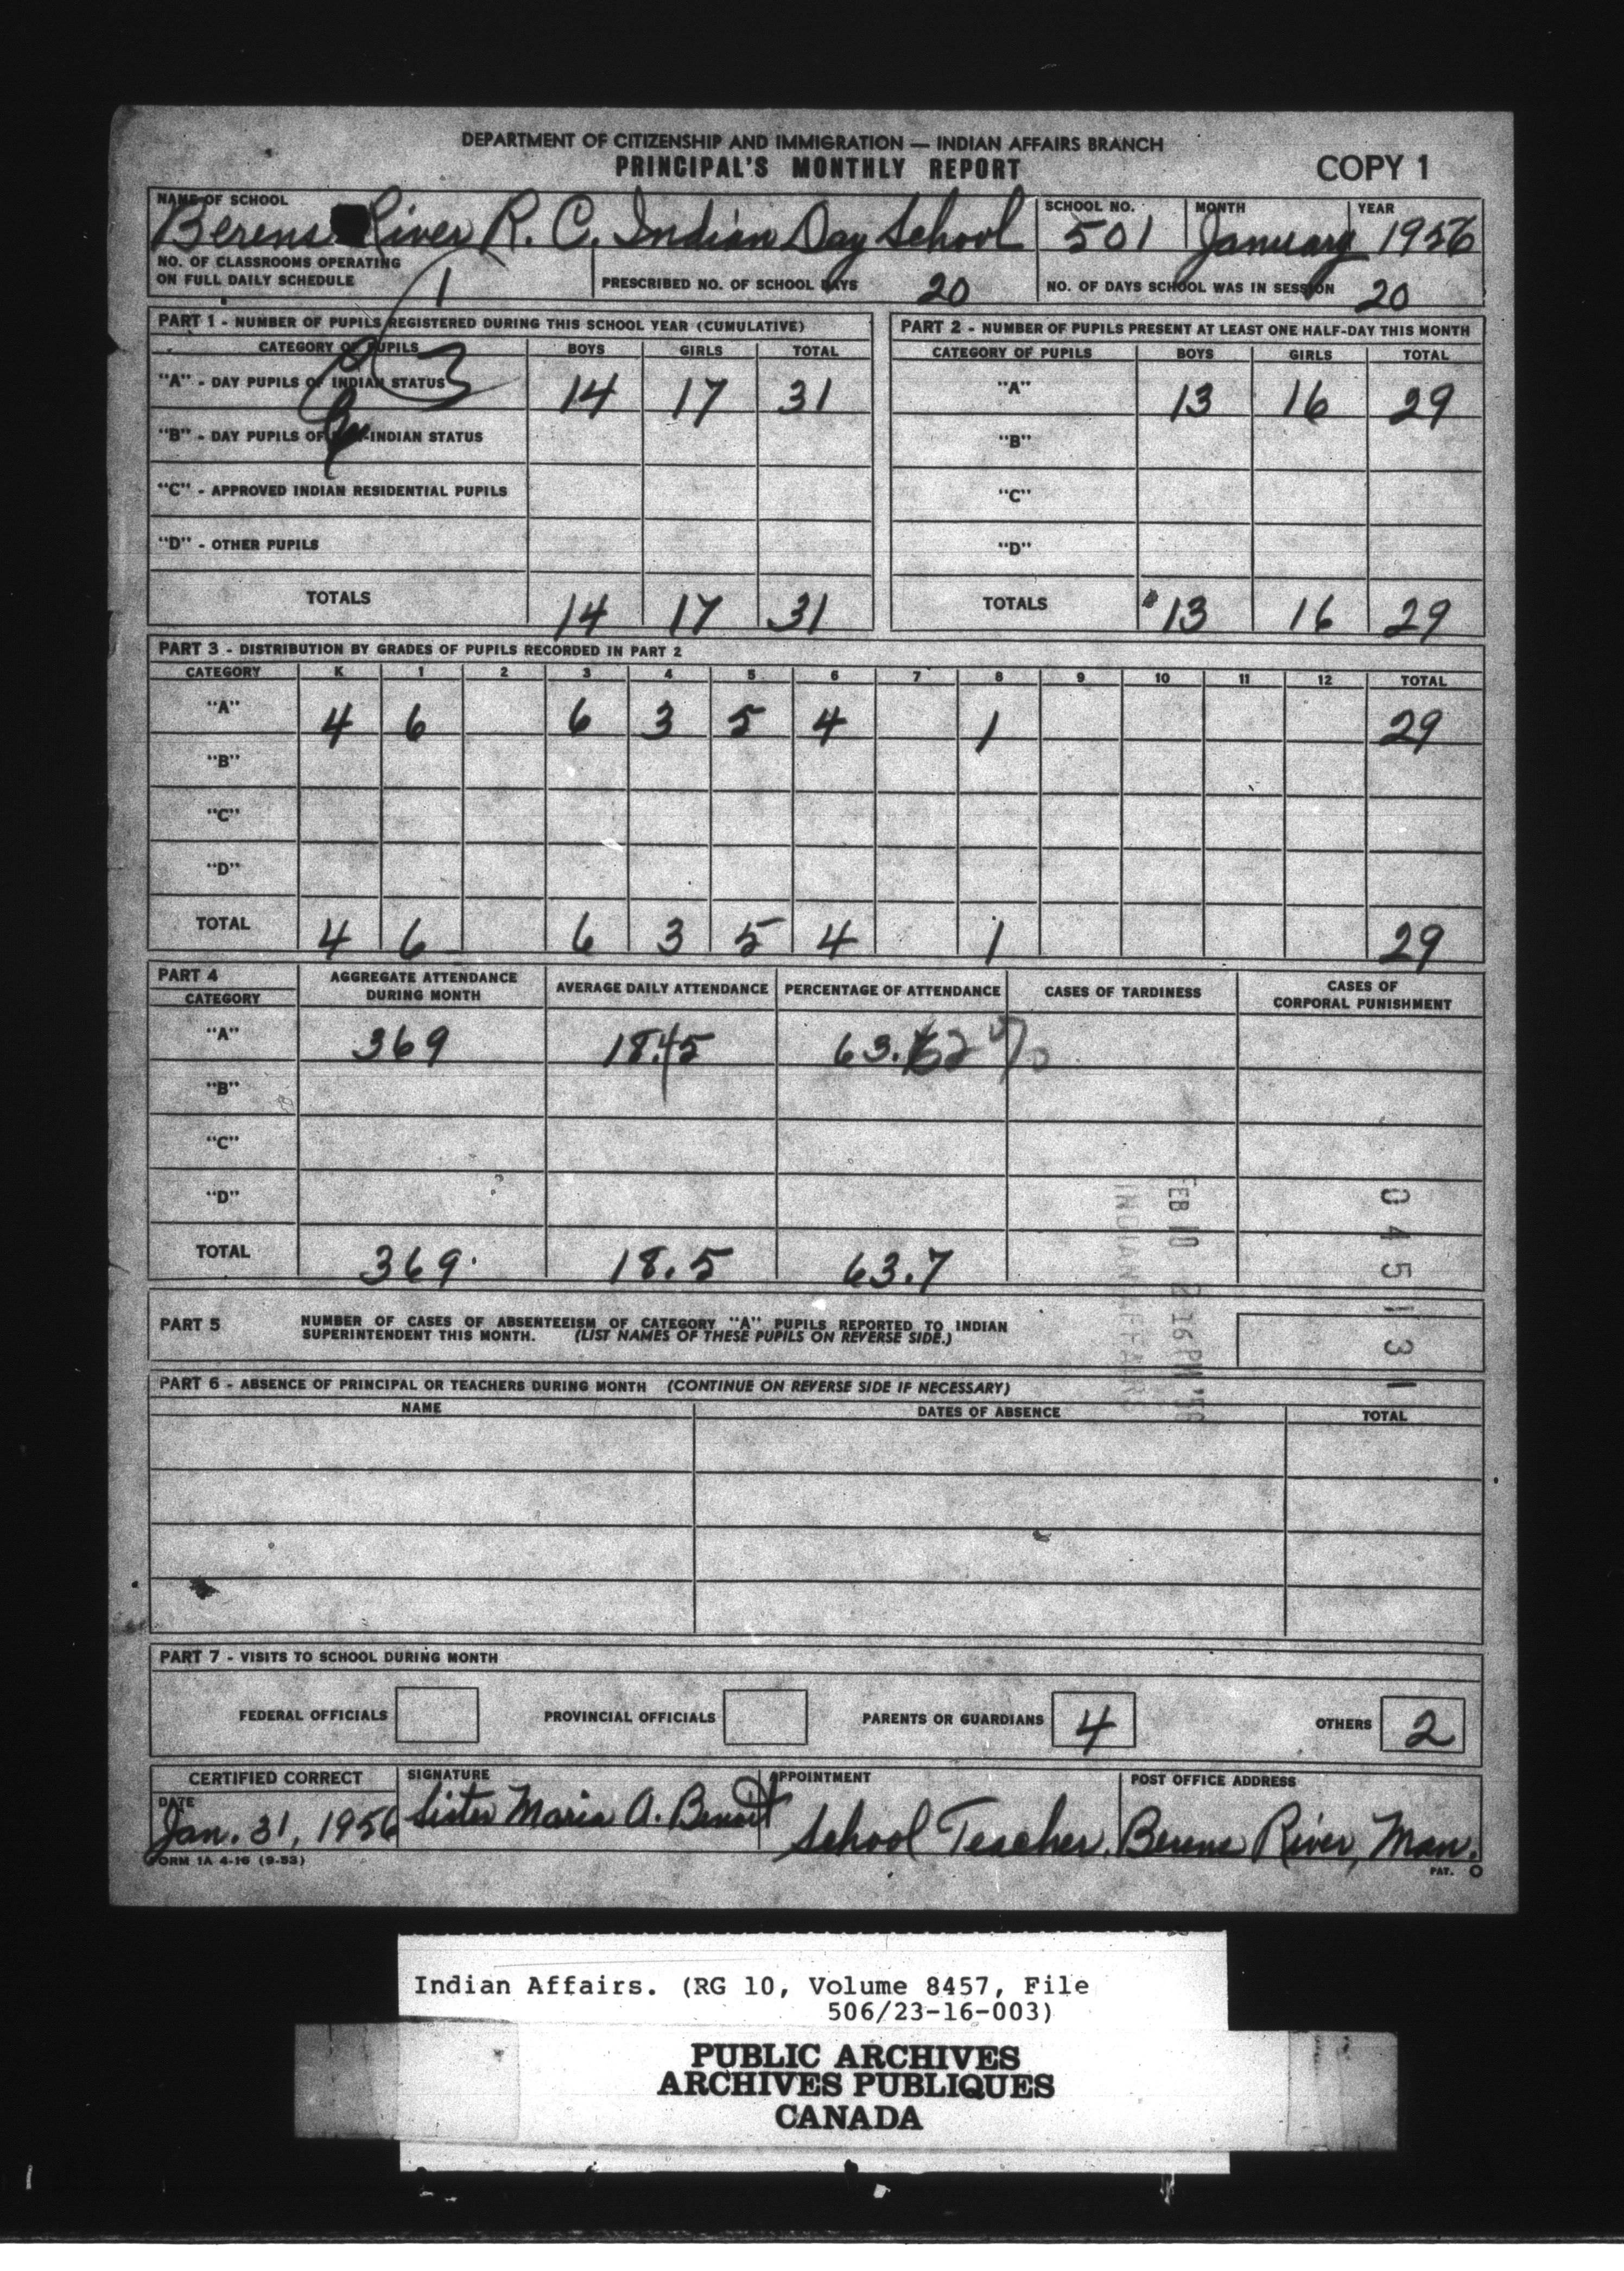 DEPARTMENT OF CITIZENSHIP AND IMMIGRATION — INDIAN AFFAIRS BRANCH
PRINCIPAL'S MONTHLY REPORT
COPY 1
NAME OF SCHOOL SCHOOL NO. MONTH YEAR
Berens River R. C. Indian Day School 501 January 1956
NO. OF CLASSROOMS OPERATING
ON FULL DAILY SCHEDULE 1 PRESCRIBED NO. OF SCHOOL DAYS 20 NO. OF DAYS SCHOOL WAS IN SESSION 20
PART 1 - NUMBER OF PUPILS REGISTERED DURING THIS SCHOOL YEAR (CUMULATIVE)
CATEGORY OF PUPILS BOYS GIRLS TOTAL
"A" - DAY PUPILS OF INDIAN STATUS 14 17 31
"B" - DAY PUPILS OF NON-INDIAN STATUS
"C" - APPROVED INDIAN RESIDENTIAL PUPILS
"D" - OTHER PUPILS
TOTALS 14 17 31
PART 2 - NUMBER OF PUPILS PRESENT AT LEAST ONE HALF-DAY THIS MONTH
CATEGORY OF PUPILS BOYS GIRLS TOTAL
"A" 13 16 29
"B"
"C"
"D"
TOTALS 13 16 29
PART 3 - DISTRIBUTION BY GRADES OF PUPILS RECORDED IN PART 2
CATEGORY K 1 2 3 4 5 6 7 8 9 10 11 12 TOTAL
"A" 4 6 6 3 5 4 1 29
"B"
"C"
"D"
TOTAL 4 6 6 3 5 4 1 29
PART 4
CATEGORY AGGREGATE ATTENDANCE DURING MONTH AVERAGE DAILY ATTENDANCE PERCENTAGE OF ATTENDANCE CASES OF TARDINESS CASES OF CORPORAL PUNISHMENT
"A" 369 18.45 63.62%
"B"
"C"
"D"
TOTAL 369 18.5 63.7
FEB 10 2 16 PM '56
INDIAN AFFAIRS
0 4 5 1 3 1
PART 5 NUMBER OF CASES OF ABSENTEEISM OF CATEGORY "A" PUPILS REPORTED TO INDIAN
SUPERINTENDENT THIS MONTH. (LIST NAMES OF THESE PUPILS ON REVERSE SIDE.)
PART 6 - ABSENCE OF PRINCIPAL OR TEACHERS DURING MONTH (CONTINUE ON REVERSE SIDE IF NECESSARY)
NAME DATES OF ABSENCE TOTAL
PART 7 - VISITS TO SCHOOL DURING MONTH
FEDERAL OFFICIALS PROVINCIAL OFFICIALS PARENTS OR GUARDIANS 4 OTHERS 2
CERTIFIED CORRECT SIGNATURE APPOINTMENT POST OFFICE ADDRESS
DATE
Jan. 31, 1956 Sister Maria A. Benoit School Teacher. Berens River, Man.
FORM 1A 4-16 (9-53)
PAT.
Indian Affairs. (RG 10, Volume 8457, File
506/23-16-003)
PUBLIC ARCHIVES
ARCHIVES PUBLIQUES
CANADA